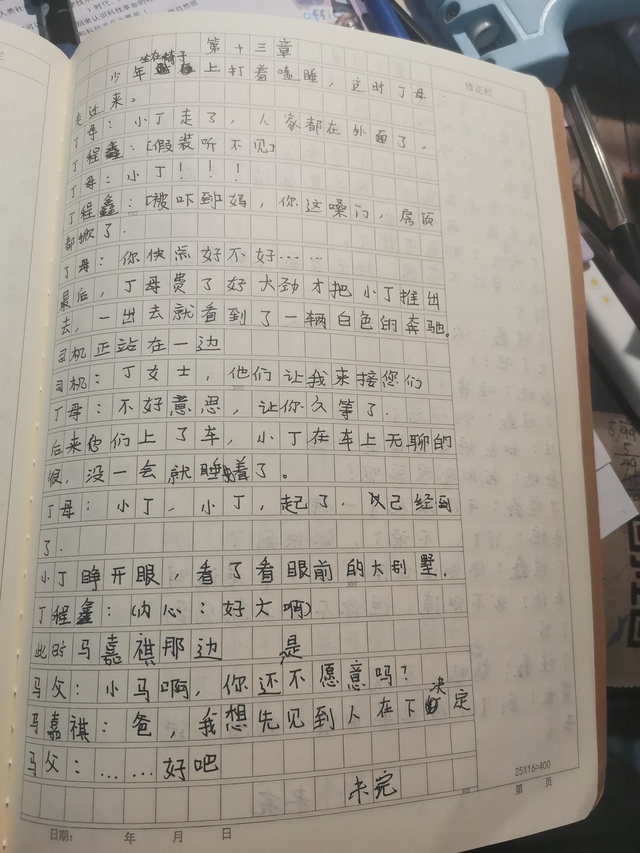 第十三章
少年坐在椅子上打着嗑睡，这时丁母
走过来。
丁母：小丁走了，人家都在外面了。
丁程鑫：[假装听不见]
丁母：小丁！！！
丁程鑫：嗷吓到妈，你这嗓门，房顶
都掀了．
丁母：你快点好不好……
最后，丁母费了好大劲才把小丁推出
去，一出去就看到了一辆白色的奔驰。
司机正站在一边
司机：丁女士，他们让我来接您们
丁母：不好意思，让你久等了．
后来他们上了车，小丁在车上无聊的
很，没一会就睡着了。
丁母：小丁，小丁，起了．以己经到
了．
小丁睁开眼，看了看眼前的大别墅．
丁程鑫：(内心：好大啊)
此时马嘉祺那边 是
马父：小马啊，你还不愿意吗？
马嘉祺：爸，我想先见到人在下决定
马父：……好吧
未完
修正栏
25X16=400
第 页
日期： 年 月 日